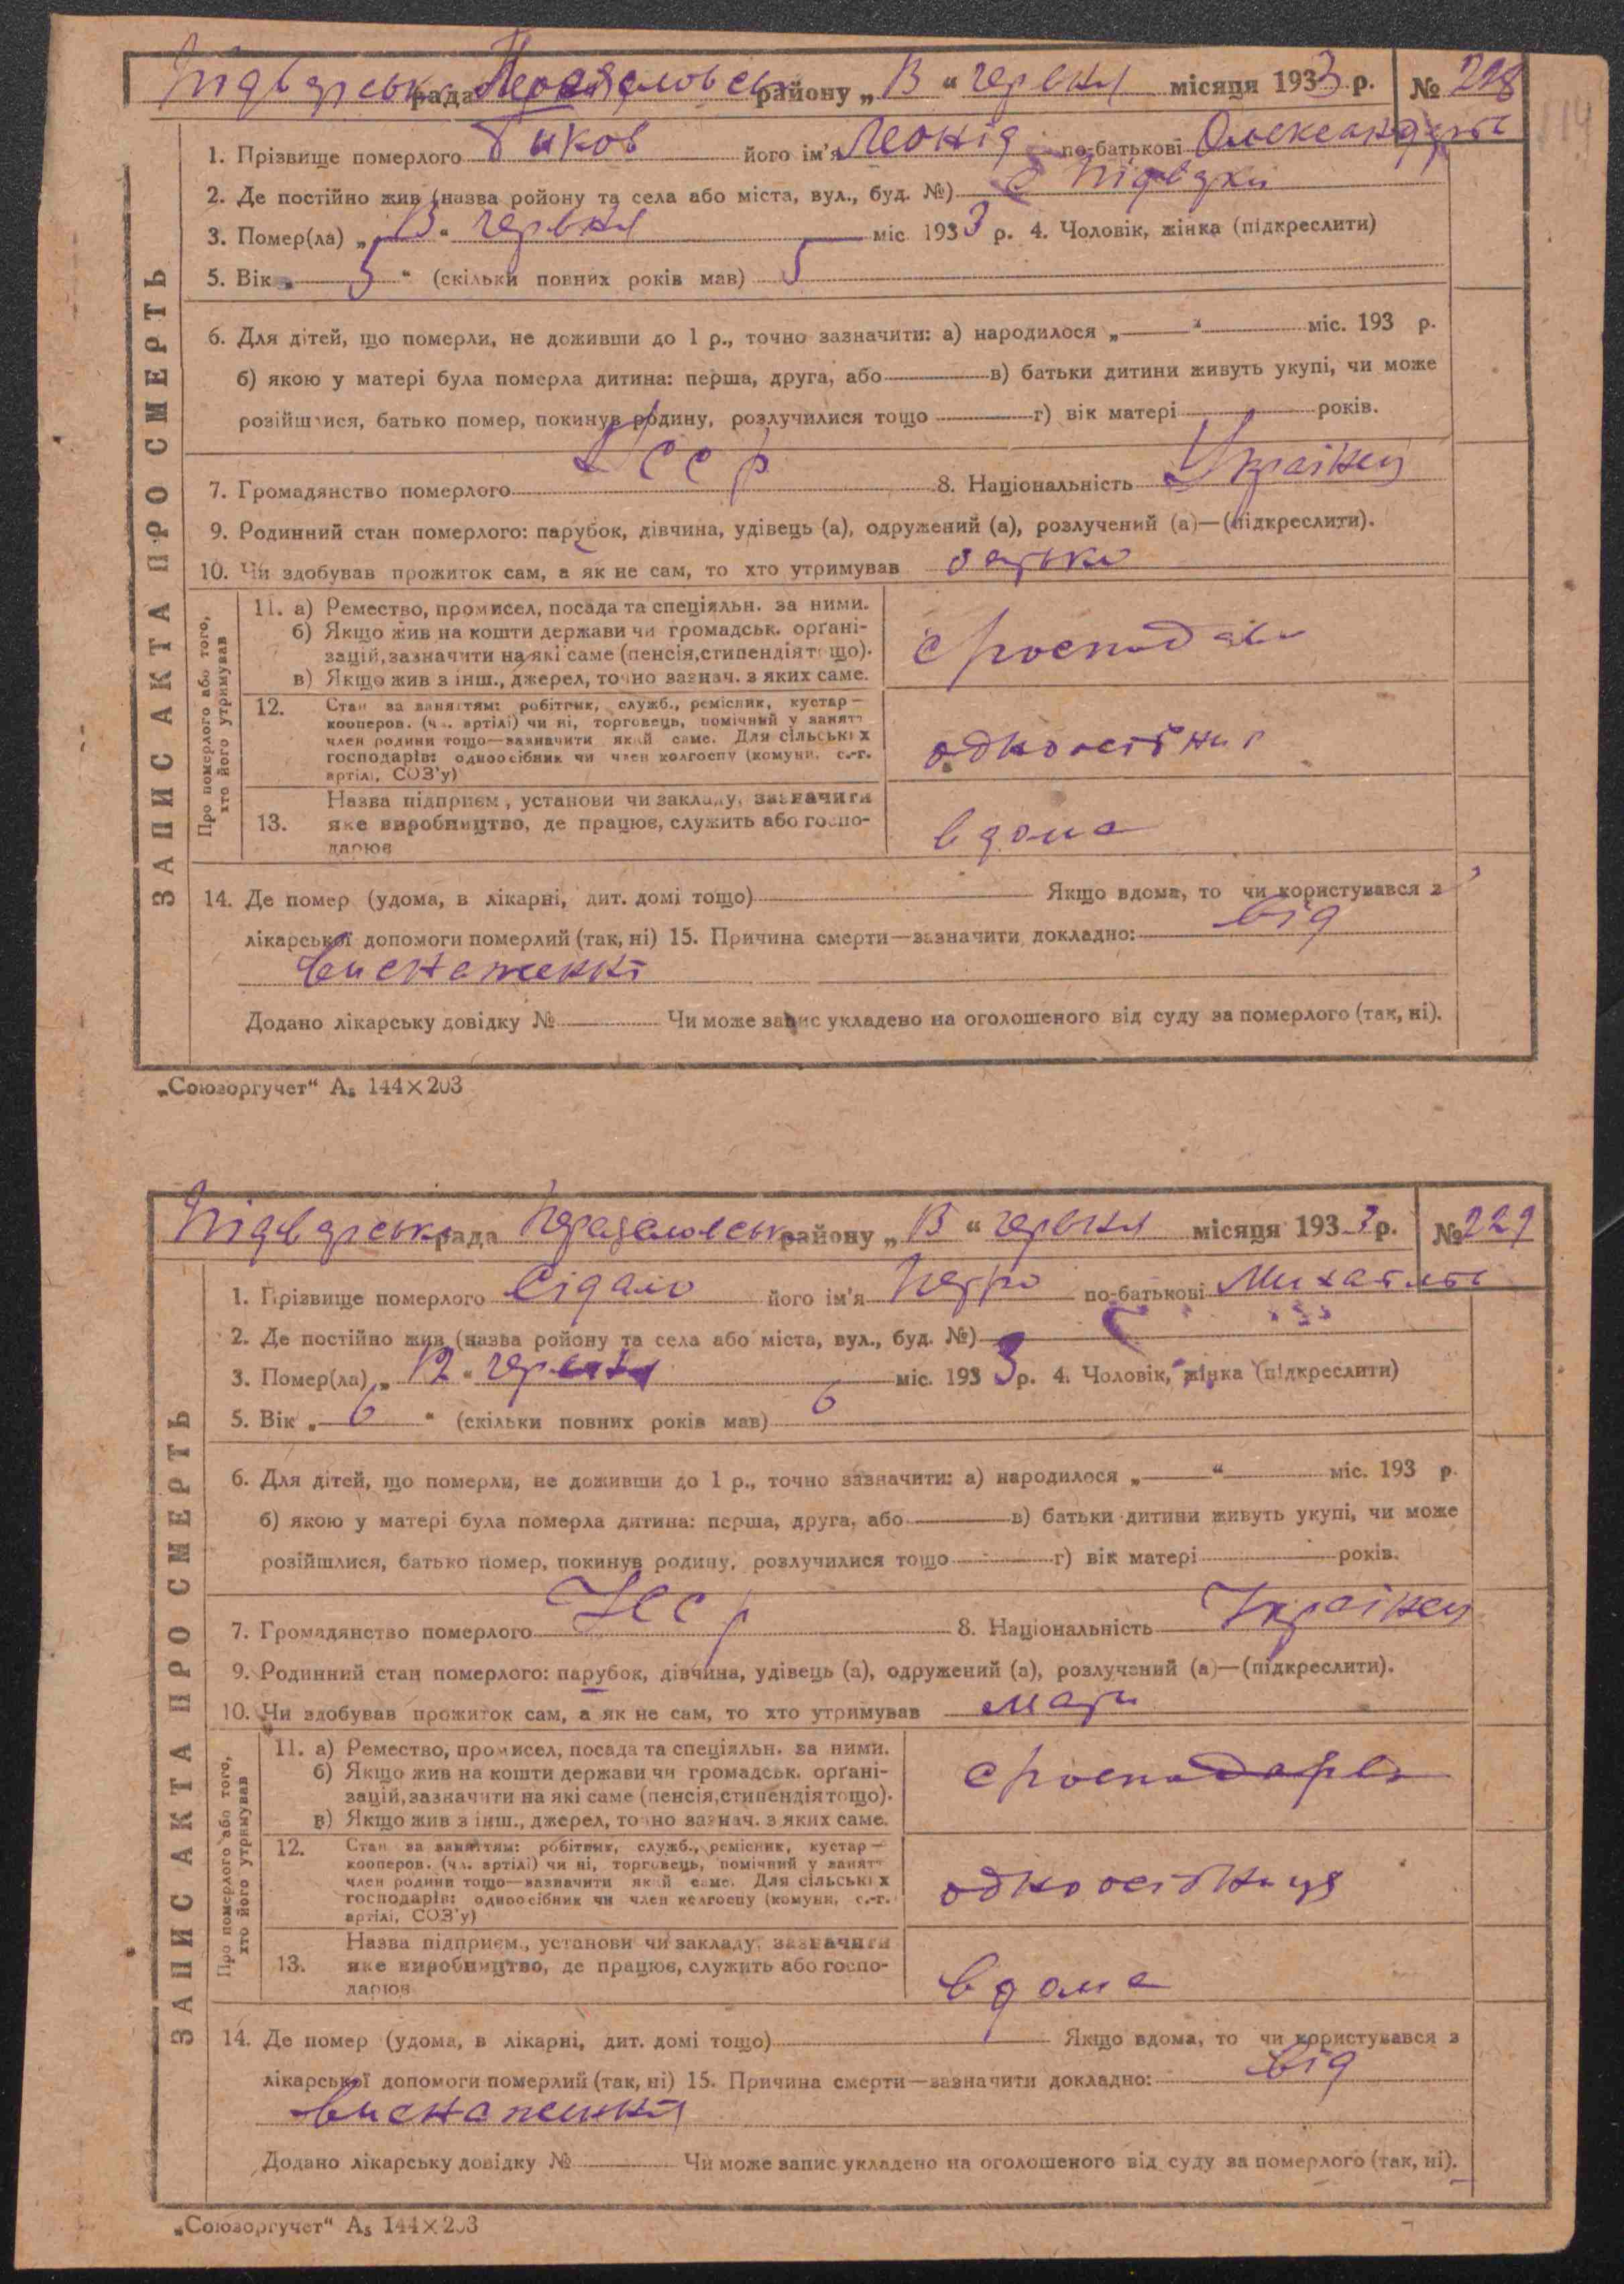 Підварська рада Переяславськ району „13“ червня місяця 1933 р. № 228
1. Прізвище померлого Биков його ім'я Леонід по-батькові Олександров
2. Де постійно жив (назва ройону та села або міста, вул., буд. №) с Підварки
3. Помер(ла) „13“ червня міс 1933 р. 4. Чоловік, жінка (підкреслити)
5. Вік „5“ (скільки повних років мав) 5
6. Для дітей, що померли, не доживши до 1 р., точно зазначити: а) народилося „ “ міс. 193 р.
б) якою у матері була померла дитина: перша, друга, або в) батьки дитини живуть укупі, чи може
розійшлися, батько помер, покинув родину, розлучилися тощо г) вік матері років.
7. Громадянство померлого Усср 8. Національність Українец
9. Родинний стан померлого: парубок, дівчина, удівець (а), одружений (а), розлучений (а)—(підкреслити).
10. Чи здобував прожиток сам, а як не сам, то хто утримував батько
ЗАПИС АКТА ПРО СМЕРТЬ
Про померлого або того, хто його утримував
11. а) Ремество, промисел, посада та спеціяльн. за ними.
б) Якщо жив на кошти держави чи громадськ. орґані-
зацій, зазначити на які саме (пенсія, стипендія тощо).
в) Якщо жив з інш., джерел, точно зазнач. з яких саме.
12. Стан за заняттям: робітник, служб., ремісник, кустар—
кооперов. (чл. артілі) чи ні, торговець, помічний у занятт
член родини тощо—зазначити який саме. Для сільських
господарів: одноосібник чи член колгоспу (комуни, с.-г.
артілі, СОЗ'у)
одноосібник
13. Назва підприєм., установи чи закладу, зазначити
яке виробництво, де працює, служить або госпо-
дарює
вдома
14. Де помер (удома, в лікарні, дит. домі тощо) Якщо вдома, то чи користувався з
лікарської допомоги померлий (так, ні) 15. Причина смерти—зазначити докладно: від
виснаження
Додано лікарську довідку № Чи може запис укладено на оголошеного від суду за померлого (так, ні).
„Союзоргучет“ А₅ 144×203
Підварська рада Переяславськ району „13“ червня місяця 1933 р. № 229
1. Прізвище померлого Сідаш його ім'я Петро по-батькові Михайлов
2. Де постійно жив (назва ройону та села або міста, вул., буд. №)
3. Помер(ла) „12“ червня міс. 1933 р. 4. Чоловік, жінка (підкреслити)
5. Вік „6“ (скільки повних років мав) 6
6. Для дітей, що померли, не доживши до 1 р., точно зазначити: а) народилося „ “ міс. 193 р.
б) якою у матері була померла дитина: перша, друга, або в) батьки дитини живуть укупі, чи може
розійшлися, батько помер, покинув родину, розлучилися тощо г) вік матері років.
7. Громадянство померлого Усср 8. Національність Українец
9. Родинний стан померлого: парубок, дівчина, удівець (а), одружений (а), розлучений (а)—(підкреслити).
10. Чи здобував прожиток сам, а як не сам, то хто утримував мати
ЗАПИС АКТА ПРО СМЕРТЬ
Про померлого або того, хто його утримував
11. а) Ремество, промисел, посада та спеціяльн. за ними.
б) Якщо жив на кошти держави чи громадськ. орґані-
зацій, зазначити на які саме (пенсія, стипендія тощо).
в) Якщо жив з інш., джерел, точно зазнач. з яких саме.
12. Стан за заняттям: робітник, служб., ремісник, кустар—
кооперов. (чл. артілі) чи ні, торговець, помічний у занятт
член родини тощо—зазначити який саме. Для сільських
господарів: одноосібник чи член колгоспу (комуни, с.-г.
артілі, СОЗ'у)
одноосібниця
13. Назва підприєм., установи чи закладу, зазначити
яке виробництво, де працює, служить або госпо-
дарює
вдома
14. Де помер (удома, в лікарні, дит. домі тощо) Якщо вдома, то чи користувався з
лікарської допомоги померлий (так, ні) 15. Причина смерти—зазначити докладно: від
виснаження
Додано лікарську довідку № Чи може запис укладено на оголошеного від суду за померлого (так, ні).
„Союзоргучет“ А₅ 144×203